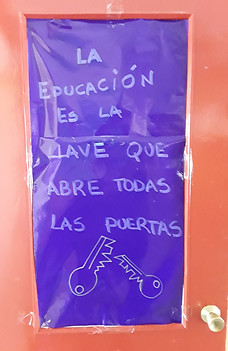 LA
EDUCACIÓN
ES LA
LLAVE QUE
ABRE TODAS
LAS PUERTAS